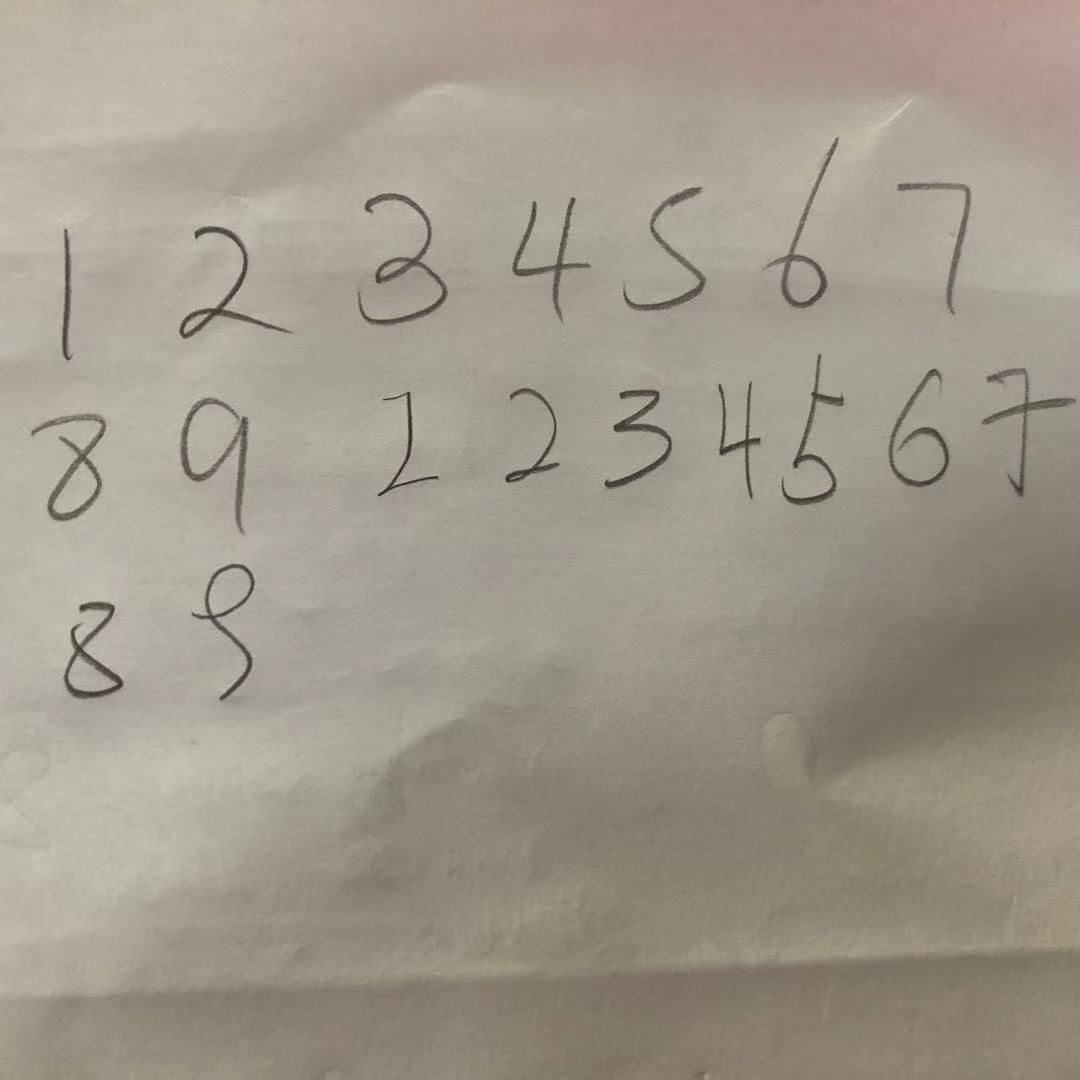 1 2 3 4 5 6 7
8 9 1 2 3 4 5 6 7
8 9